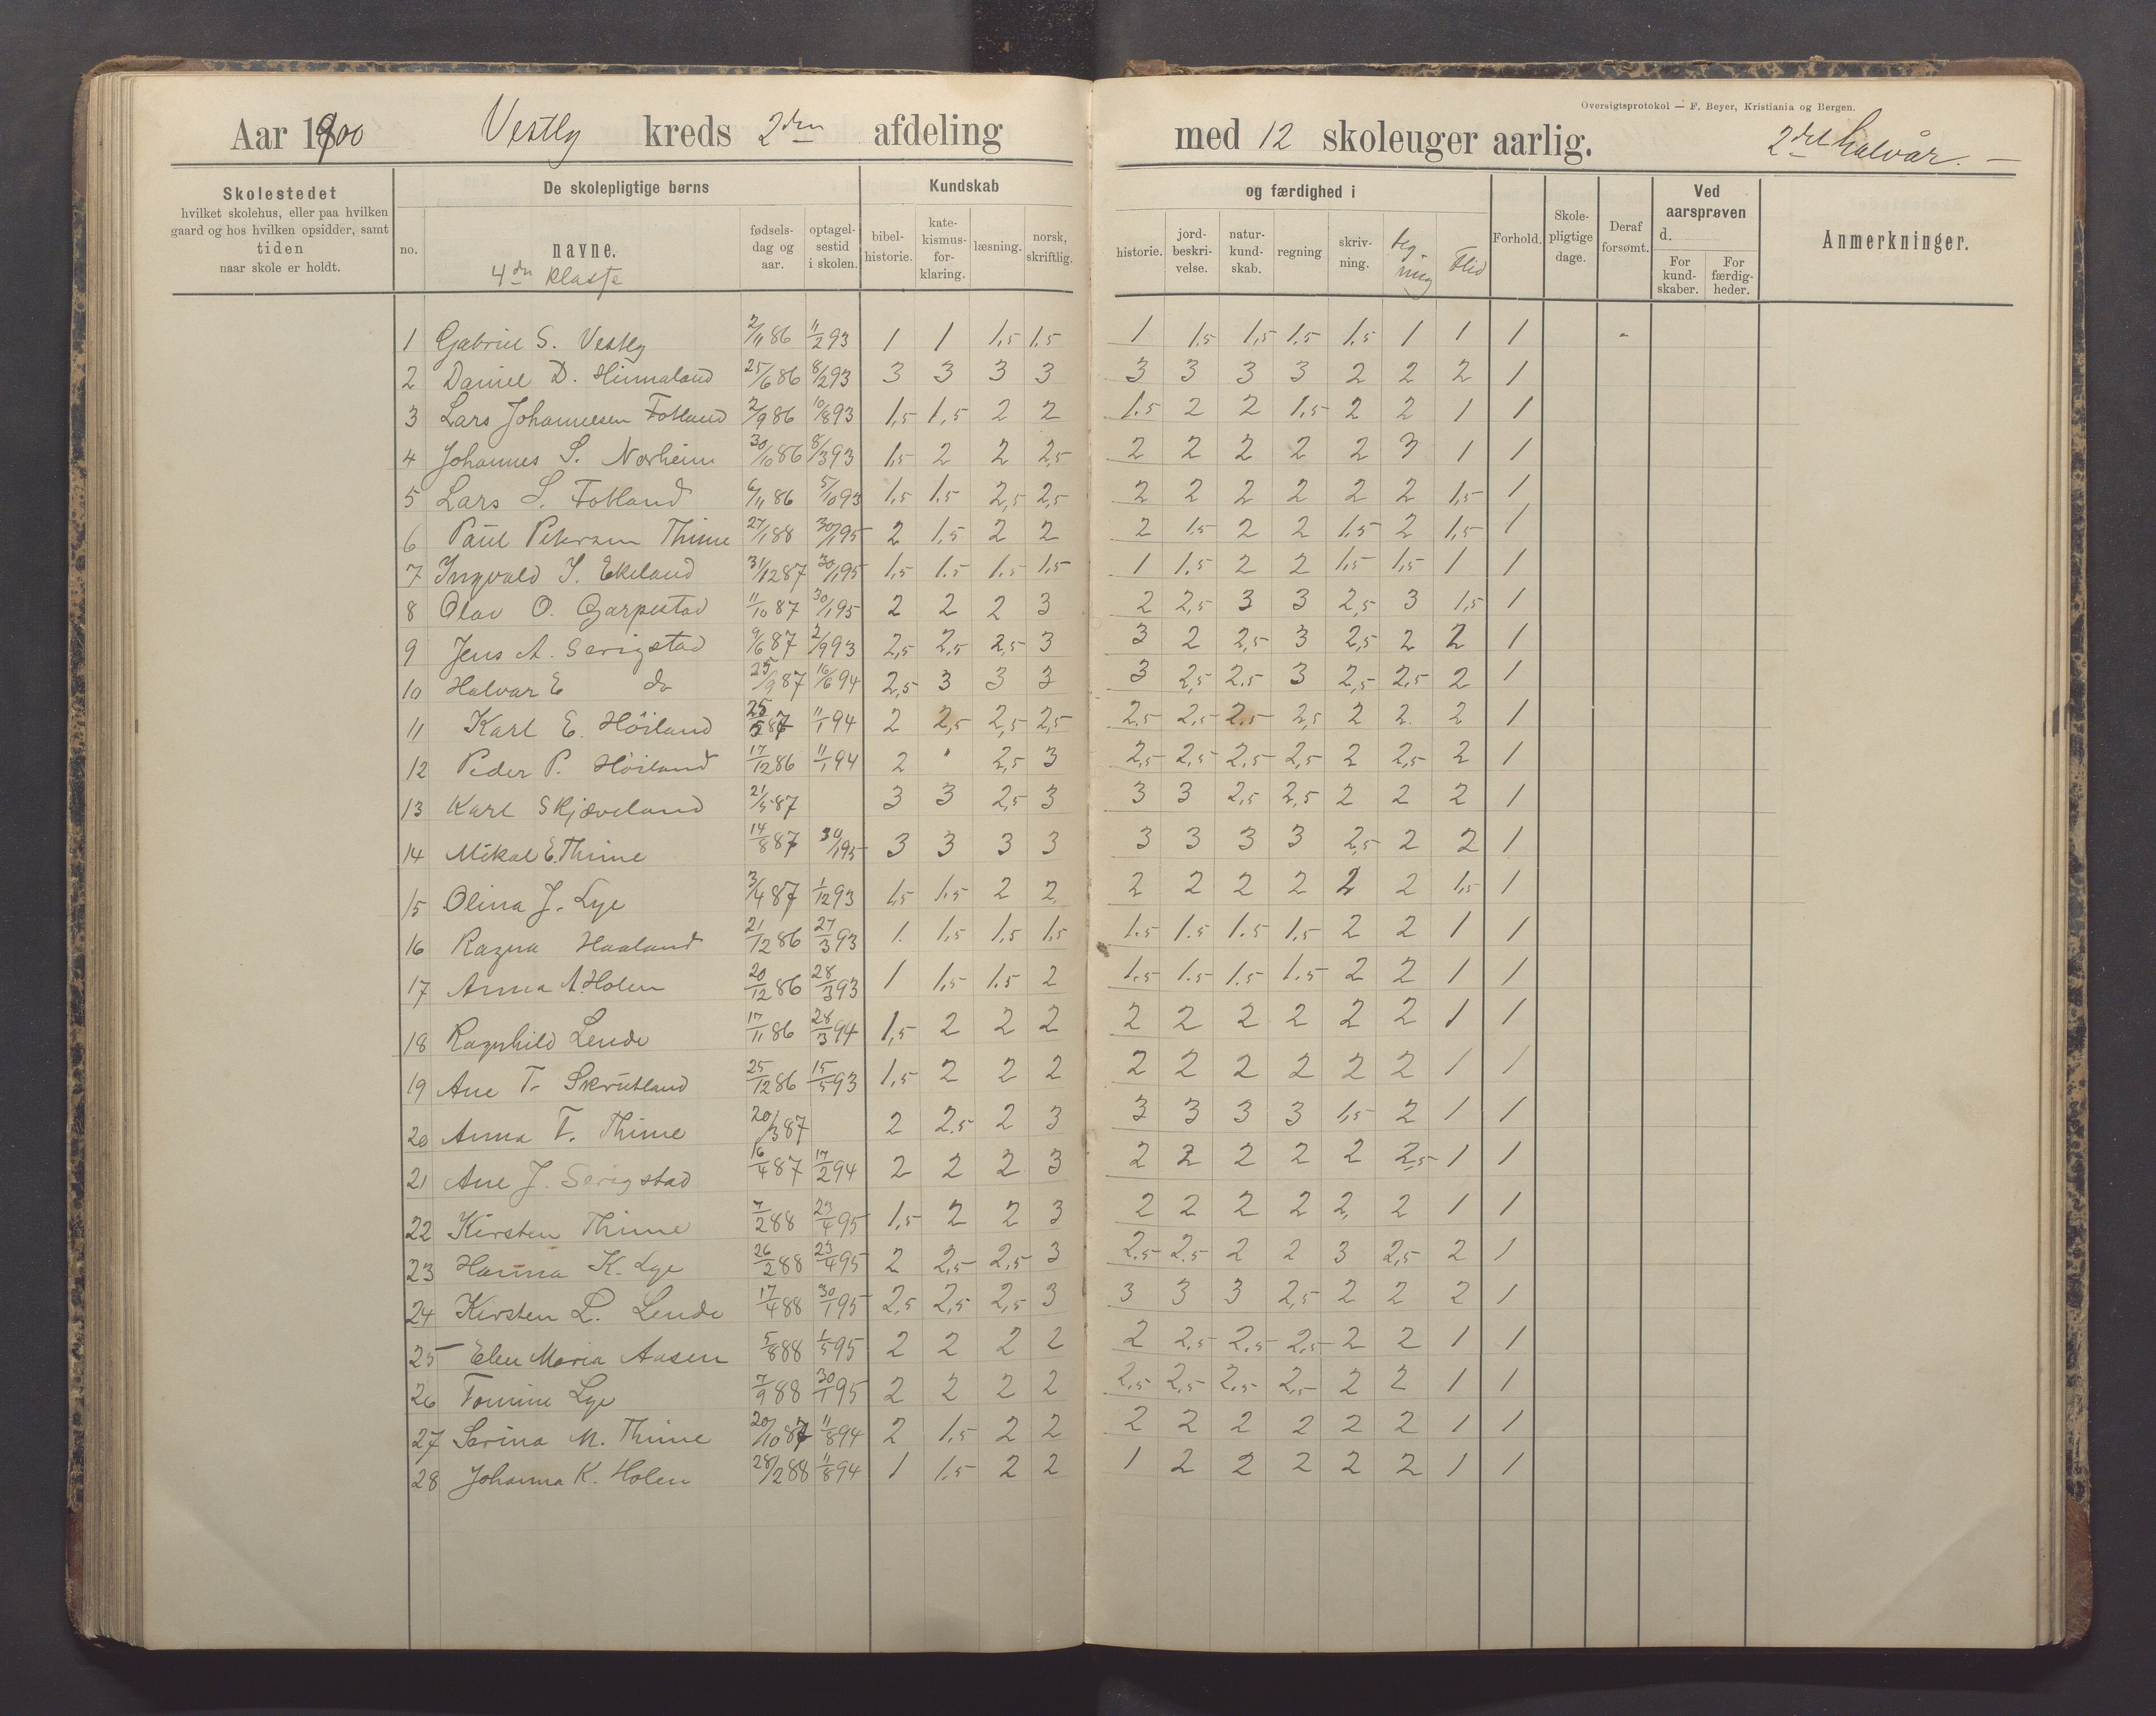 Oversigtsprotokol — F. Beyer, Kristiania og Bergen.
Aar 1900 Vestly kreds 2den afdeling med 12 skoleuger aarlig. 2det halvår. —
Skolestedet
hvilket skolehus, eller paa hvilken
gaard og hos hvilken opsidder, samt
tiden
naar skole er holdt.
De skolepligtige børns
no.
navne.
4de klasse
fødsels-
dag og
aar.
optagel-
sestid
i skolen.
Kundskab
bibel-
historie.
kate-
kismus-
for-
klaring.
læsning.
norsk,
skriftlig.
og færdighed i
historie.
jord-
beskri-
velse.
natur-
kund-
skab.
regning
skriv-
ning.
teg-
ning
Flid
Forhold.
Skole-
pligtige
dage.
Deraf
forsømt.
Ved
aarsprøven
d.
For
kund-
skaber.
For
færdig-
heder.
Anmerkninger.
1 Gabriel S. Vestly 2/11 86 11/2 93 1 1 1,5 1,5 1 1,5 1,5 1,5 1,5 1 1 1 -
2 Daniel D. Hinnaland 25/6 86 8/2 93 3 3 3 3 3 3 3 3 2 2 2 1
3 Lars Johannesen Fotland 2/9 86 10/8 93 1,5 1,5 2 2 1.5 2 2 1,5 2 2 1 1
4 Johannes S. Norheim 30/10 86 8/3 93 1,5 2 2 2,5 2 2 2 2 2 3 1 1
5 Lars S. Fotland 6/11 86 5/10 93 1,5 1.5 2,5 2,5 2 2 2 2 2 2 1,5 1
6 Paul Petersen Thime 27/1 88 30/1 95 2 1,5 2 2 2 1,5 2 2 1,5 2 1,5 1
7 Ingvald I. Ekeland 31/12 87 30/1 95 1,5 1.5 1,5 1,5 1 1.5 2 2 1,5 1,5 1 1
8 Olav O. Garpestad 11/10 87 30/1 95 2 2 2 3 2 2,5 3 3 2,5 3 1,5 1
9 Jens A. Serigstad 9/6 87 2/9 93 2,5 2,5 2,5 3 3 2 2,5 3 2,5 2 2 1
10 Halvar E do 25/9 87 16/6 94 2,5 3 3 3 3 2,5 2.5 3 2,5 2,5 2 1
11 Karl E. Höiland 25/3 87 11/1 94 2 2,5 2,5 2,5 2.5 2,5 2.5 2,5 2 2. 2 1
12 Peder P. Höiland 17/12 86 11/1 94 2 " 2,5 3 2,5 2,5 2,5 2,5 2 2,5 2 1
13 Karl Skjæveland 21/5 87 3 3 2,5 3 3 3 2,5 2,5 2 2 2 1
14 Mikal E. Thime 14/8 87 30/1 95 3 3 3 3 3 3 3 3 2,5 2 2 1
15 Olina J. Lye 3/4 87 1/12 93 1,5 1,5 2 2 2 2 2 2 2 2 1,5 1
16 Ragna Haaland 21/12 86 27/3 93 1. 1,5 1,5 1,5 1.5 1.5 1.5 1,5 2 2 1 1
17 Anna A. Holen 20/12 86 28/3 93 1 1,5 1.5 2 1.5 1.5 1.5 1.5 2 2 1 1
18 Ragnhild Lende 17/11 86 28/3 94 1,5 2 2 2 2 2 2 2 2 2 1 1
19 Ane T. Skrutland 25/12 86 15/5 93 1,5 2 2 2 2 2 2 2 2 2 1 1
20 Anna T. Thime 20/3 87 2 2.5 2 3 3 3 3 3 1,5 2 1 1
21 Ane J. Serigstad 16/4 87 17/2 94 2 2 2 3 2 2 2 2 2 2,5 1 1
22 Kirsten Thime 7/2 88 23/4 95 1,5 2 2 3 2 2 2 2 2, 2 1 1
23 Hanna K. Lye 26/2 88 23/4 95 2 2,5 2,5 3 2.5 2.5 2 2 3 2,5 2 1
24 Kirsten L. Lende 17/4 88 30/1 95 2,5 2,5 2,5 3 3 3 3 2,5 2 2 2 1
25 Elen Maria Aasen 5/8 88 1/5 95 2 2 2 2 2 2,5 2.5 2,5 2 2 1 1
26 Tomine Lye 7/9 88 30/1 95 2 2 2 2 2,5 2,5 2.5 2,5 2 2 1 1
27 Serina M. Thime 20/10 87 11/8 94 2 1.5 2 2 2 2 2 2 2 2 1 1
28 Johanna K. Holen 28/2 88 11/8 94 1 1,5 2 2 1 2 2 2 2 2 1 1